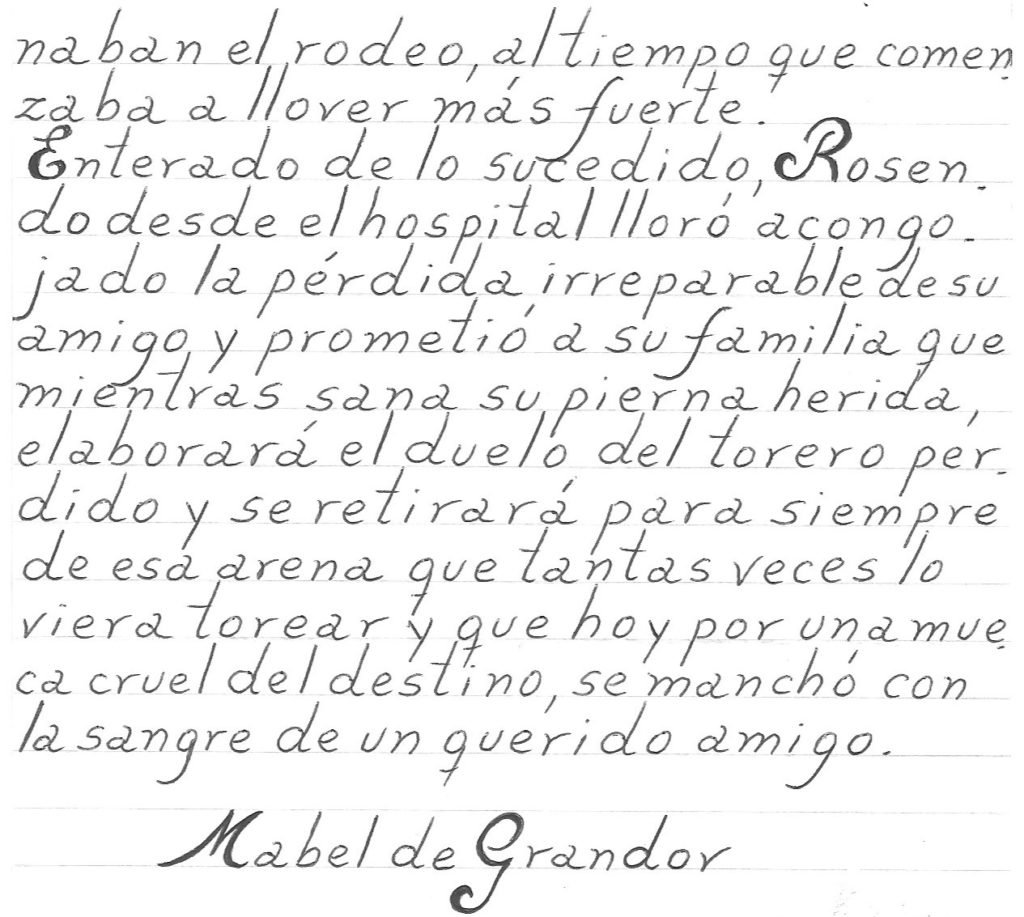 naban el rodeo, al tiempo que comen.
zaba a llover más fuerte.
Enterado de lo sucedido, Rosen.
do desde el hospital lloró acongo.
jado la pérdida irreparable de su
amigo, y prometió a su familia que
mientras sana su pierna herida,
elaborará el duelo del torero per.
dido y se retirará para siempre
de esa arena que tantas veces lo
viera torear y que hoy por una mue.
ca cruel del destino, se manchó con
la sangre de un querido amigo.
Mabel de Grandor